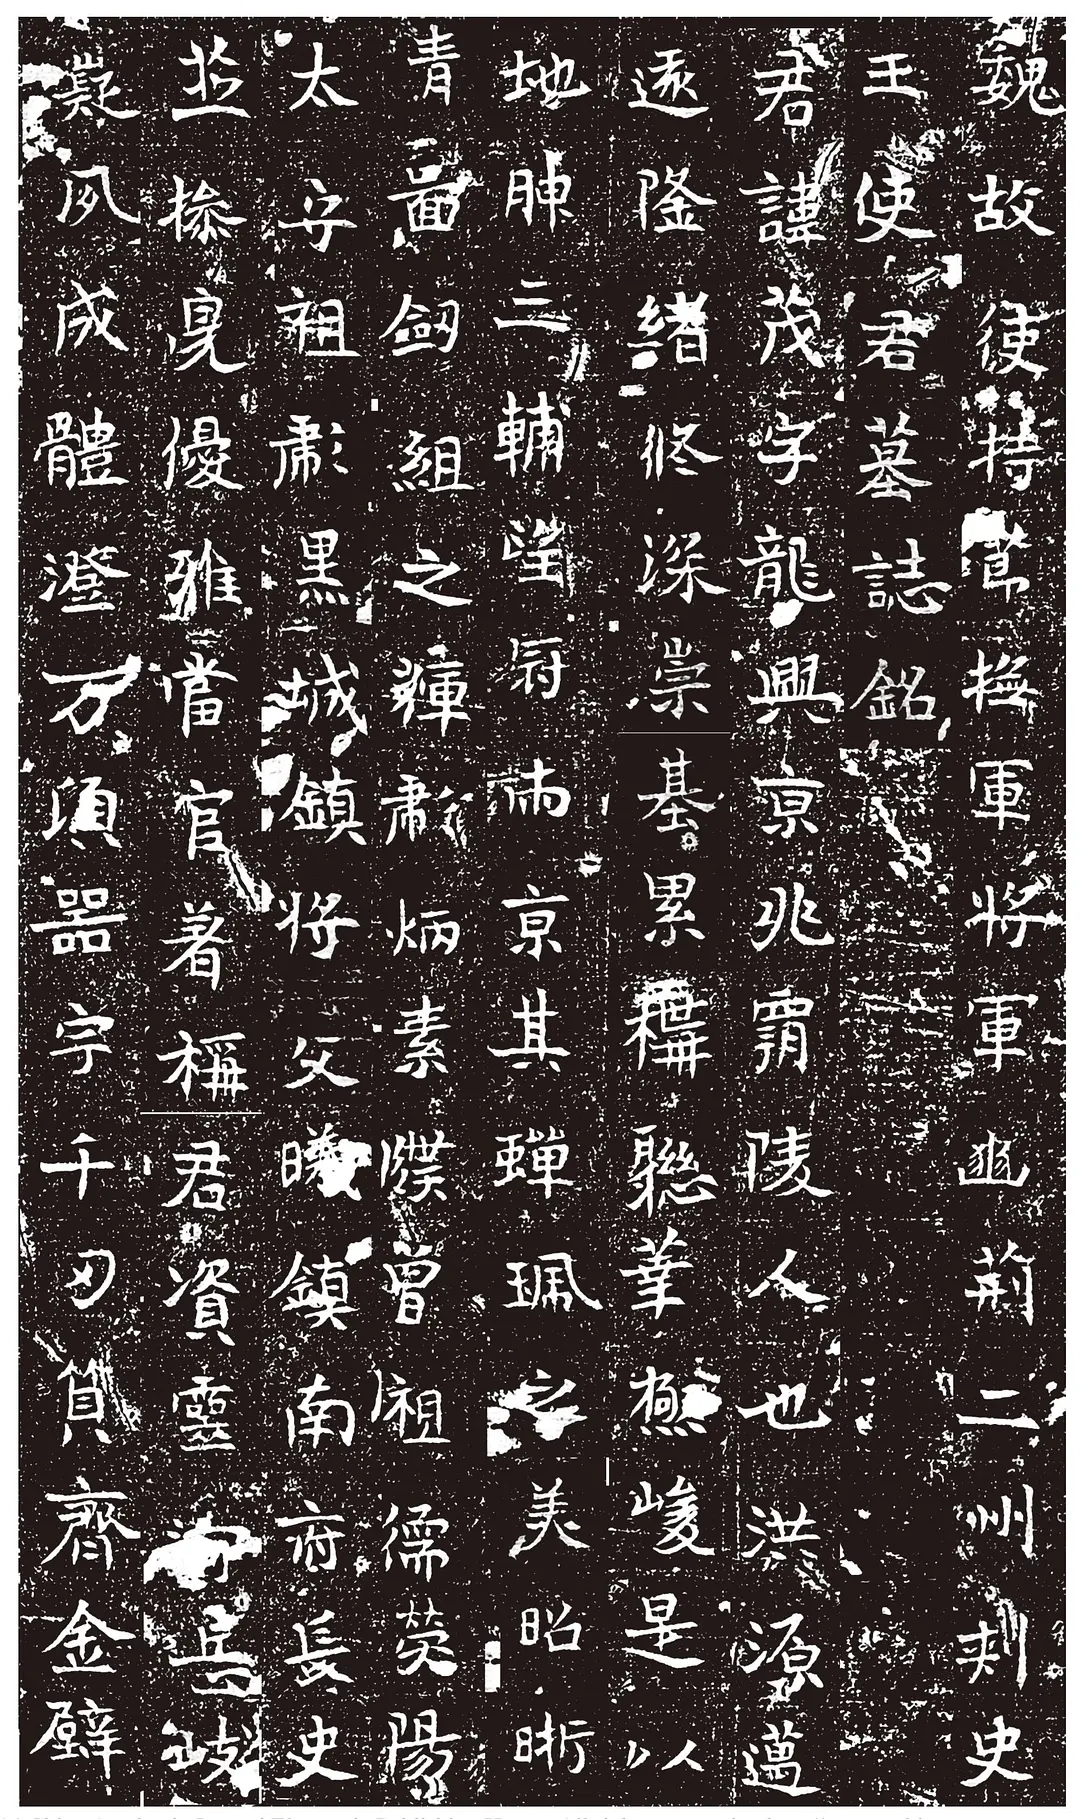 魏故使持節撫軍將軍豳荊二州刺史
王使君墓誌銘
君諱茂字龍興京兆霸陵人也洪源邁
遠隆緒修深崇基累構聯華極峻是以
地腴三輔望冠兩京其蟬珮之美昭晣
青啚劔組之暉彪炳素牒曾祖儒滎陽
太守祖彪黑城鎮將父曦鎮南府長史
並操身優雅當官著稱君資靈岐
嶷夙成體澄万頃器宇千刃質齊金璧